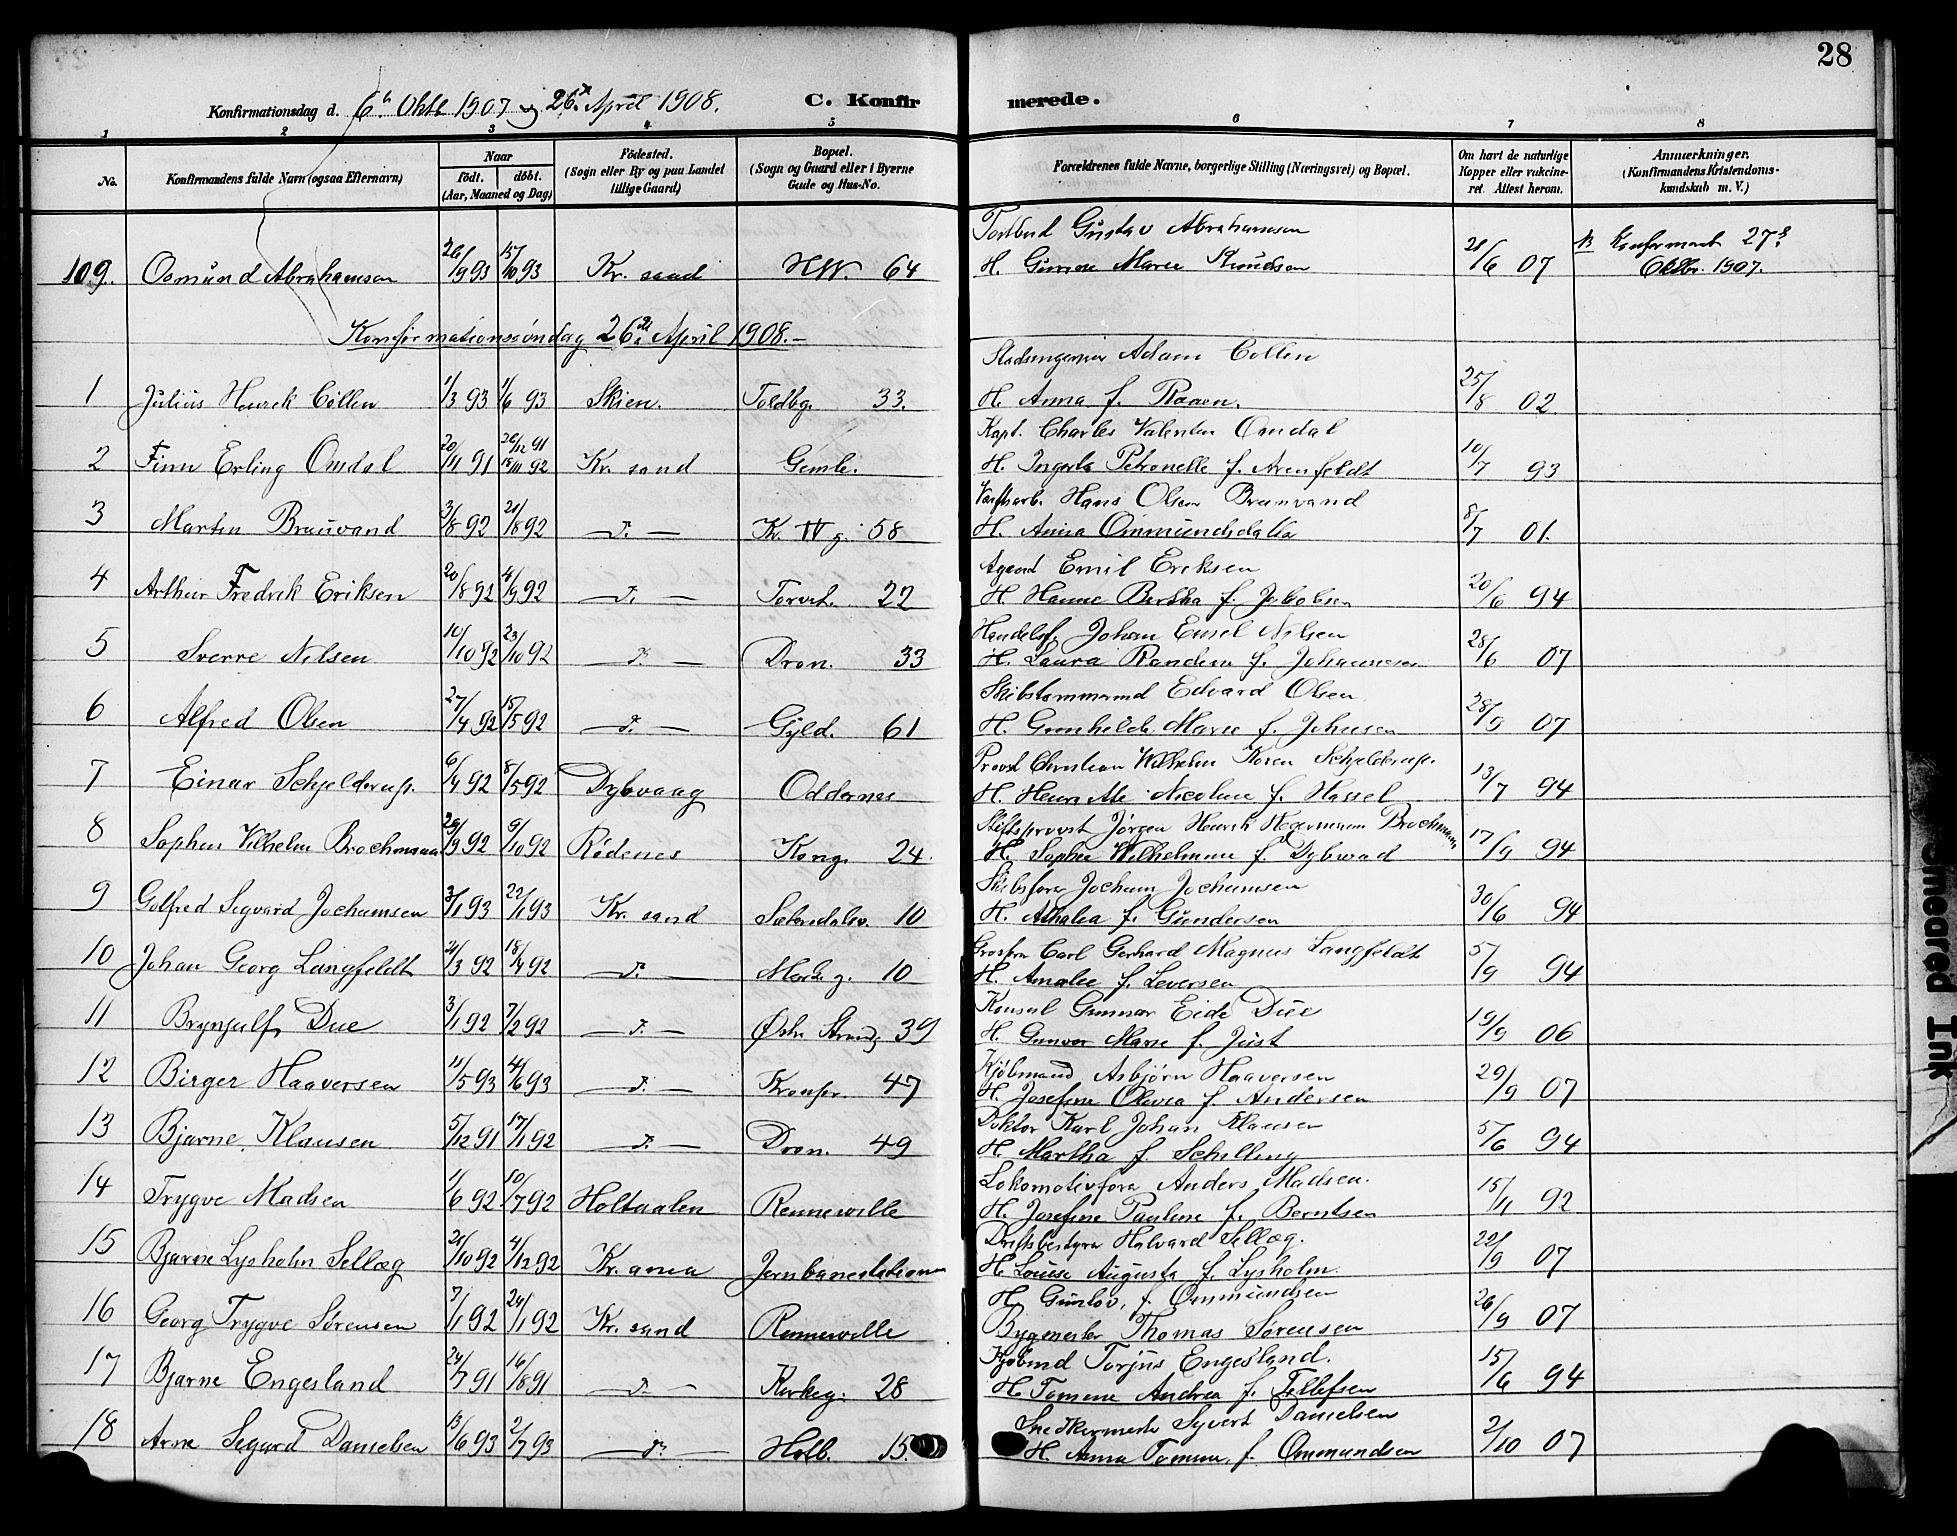 28
Konfirmationsdag d. 6te Oktb 1907 og 26de April 1908. C. Konfirmerede.
1 2 3 4 5 6 7 8
No. Konfirmandens fulde Navn (ogsaa Efternavn) Naar födt. döbt. (Aar, Maaned og Dag) Födested. (Sogn eller By og paa Landet tillige Gaard) Bopæl. (Sogn og Gaard eller i Byerne Gade og Hus-No. Forældrenes fulde Navne, borgerlige Stilling (Næringsvei) og Bopæl. Om havt de naturlige Kopper eller vakcineret. Attest herom. Anmærkninger. (Konfirmandens Kristendomskundskab m. V.)
Gustav Abrahamsen
109. Osmund Abrahamsen 26/9 93 15/10 93 Kr. sand H.W. 64 H. Marie Knudsen 21/6 07 Konfirmert 27de Oktbr. 1907.
Konfirmationssöndag 26de April 1908.
Stadsingeniör Adam Collin
1 Julius Henrik Collin 1/3 93 1/6 93 Skien. Toldbg. 33. H. Anna f. Raaen. 25/8 02
Kapt. Charles Valentin Omdal
2 Finn Erling Omdal 20/11 91 26/12 91 18/11 92 Kr. sand Gimle. H. Petronelle f. Arenfeldt 10/7 93
Hans Olsen Braavand
3 Martin Braavand 3/8 92 21/8 92 D. Kr. IV g. 58 H. Anna Ommundsdatter 8/7 01.
Agent Emil Eriksen
4 Arthur Fredrik Eriksen 20/8 92 4/9 92 D. Torvet. 22 H. Hanne Bertha f. Jakobsen 20/6 94
Handelsf. Johan Emil Nilsen
5 Sverre Nilsen 10/10 92 23/10 92 D. Dron. 33 H. Laura Randine f. Johannesen 28/6 07
Skibstømmermd Edvard Olsen
6 Alfred Olsen 27/4 92 15/5 92 D. Gyld. 61 H. Gunhilde Marie f. Johnsen 28/9 07
Provst Christian Wilhelm Koren Schjelderup.
7 Einar Schjelderup. 6/4 92 8/5 92 Dybvaag Oddernes H. Henriette Nicoline f. Hassel 13/7 94
Stiftsprovst Jørgen Henrik Hegermann Brochmann
8 Sophus Vilhelm Brochmann 20/9 92 9/10 92 Rødenes Kong. 24. H. Sophie Wilhelmine f. Dybwad 17/9 94
Skibsfører Jochum Jochumsen
9 Golfred Sigvard Jochumsen 3/1 93 22/1 93 Kr. sand Sætersdalsv. 10 H. Athalia f. Gundersen 30/6 94
Carl Gerhard Magnus Langfeldt
10 Johan Georg Langfeldt 21/3 92 18/4 92 D. Mark. g. 10 H. Amalie f. Leversen 5/9 94
Konsul Gunnar Eide Due
11 Brynjulf Due 3/1 92 7/2 92 D. Østr. Strandg 39 H. Gunvor Marie f. Just 19/9 06
Kjöbmand Asbjörn Haaversen
12 Birger Haaversen 11/5 93 4/6 93 D. Kronpr. 47 H. Josefine Olivia f. Andersen 29/9 07
Doktor Karl Johan Klausen
13 Bjarne Klausen 5/12 91 17/1 92 D. Dron. 49 H. Martha f. Schilling 5/6 94
Lokomotivfører Anders Madsen.
14 Trygve Madsen 1/6 92 10/7 92 Holtaalen Renneville H. Josefine Pauline f. Berntsen 15/11 92
Driftsbestyrer Halvard Sellæg.
15 Bjarne Lysholm Sellæg 21/10 92 4/12 92 Kr. ania Jernbanestationen H. Louise Augusta f. Lysholm. 22/9 07
H. Gunlov, f. Ommundsen
16 Georg Trygve Sørensen 7/1 92 24/1 92 Kr. sand Renneville Bygmester Thomas Sørensen 26/9 07
Kjøbmd Torjus Engesland.
17 Bjarne Engesland 24/7 91 16/8 91 D. Kirkeg. 28 H. Tomine Andrea f. Tellefsen 15/6 94
Snedkermester Syvert Danielsen
18 Arne Sigurd Danielsen 13/6 93 2/7 93 D. Holb. 15. H. Anna Tomine f. Ommundsen 2/10 07
Smeared Ink